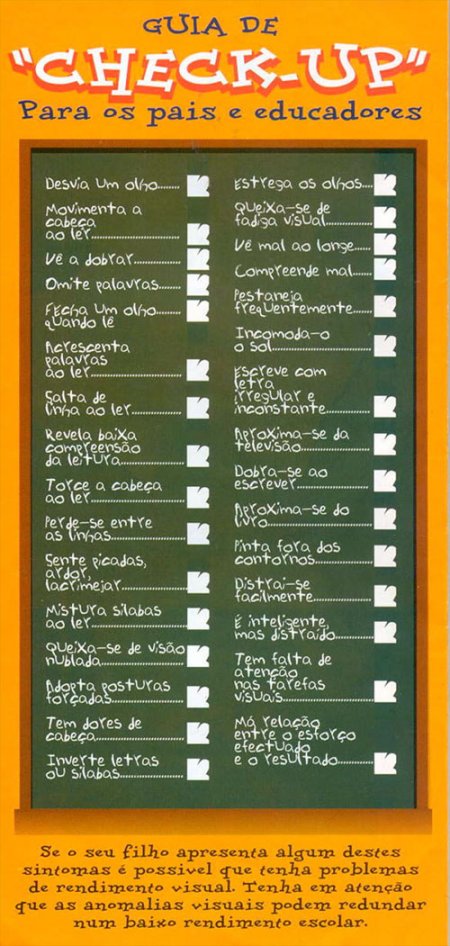 GUIA DE
"CHECK-UP"
Para os pais e educadores
Desvia um olho........
Movimenta a
cabeça
ao ler........................
Vê a dobrar..............
Omite palavras.......
Fecha um olho
quando lê
Acrescenta
palavras
ao ler........................
Salta de
linha ao ler..............
Revela baixa
compreensão
da leitura.................
Torce a cabeça
ao ler........................
Perde-se entre
as linhas...................
Sente picadas,
ardor,
lacrimejar................
Mistura sílabas
ao ler........................
Queixa-se de visão
nublada.....................
Adopta posturas
forçadas...................
Tem dores de
cabeça.......................
Inverte letras
ou sílabas.................
Estrega os olhos....
Queixa-se de
fadiga visual............
Vê mal ao longe.....
Compreende mal.....
Pestaneja
frequentemente.....
Incomoda-o
o sol..........................
Escreve com
letra
irregular e
inconstante..............
Aproxima-se da
televisão...................
Dobra-se ao
escrever....................
Aproxima-se do
livro...........................
Pinta fora dos
contornos.................
Distrai-se
facilmente................
É inteligente,
mas distraído...........
Tem falta de
atenção
nas tarefas
visuais.......................
Má relação
entre o esforço
efectuado
e o resultado...........
Se o seu filho apresenta algum destes
sintomas é possivel que tenha problemas
de rendimento visual. Tenha em atenção
que as anomalias visuais podem redundar
num baixo rendimento escolar.